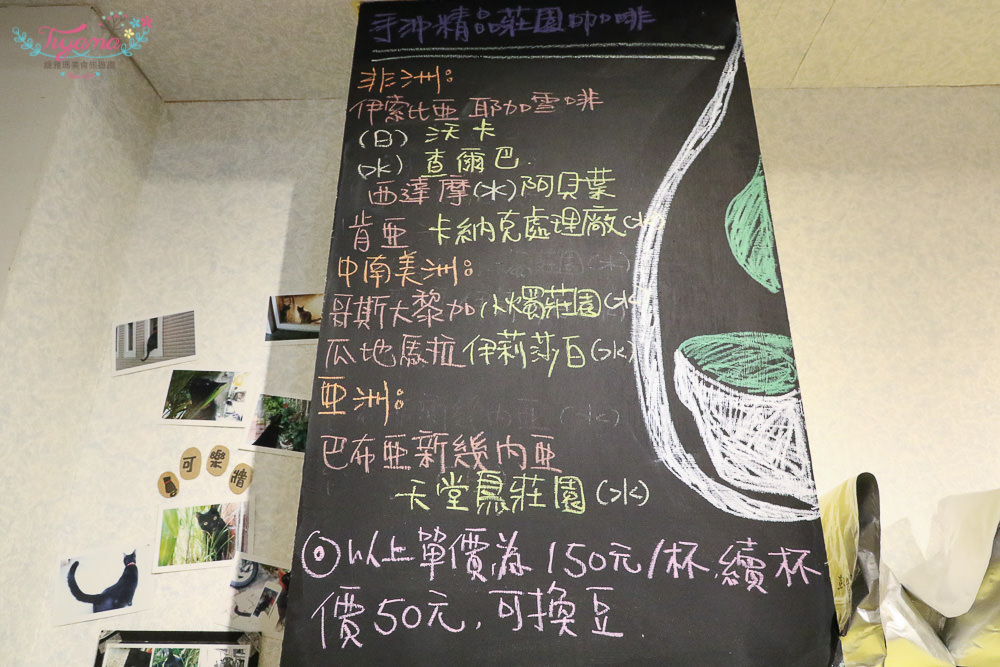 Tuyama
手沖精品莊園咖啡
非洲:
伊索比亞 耶加雪啡
(日) 沃卡
(水) 查爾巴.
西達摩(水)阿貝葉
肯亞 卡納克處理廠(水)
中南美洲:
哥斯大黎加 小燭莊園(水)
瓜地馬拉 伊莉莎白(水)
亞洲:
巴布亞新幾內亞
天堂鳥莊園(水)
◎以上單價為150元/杯,續杯
價50元,可換豆.
可樂牆